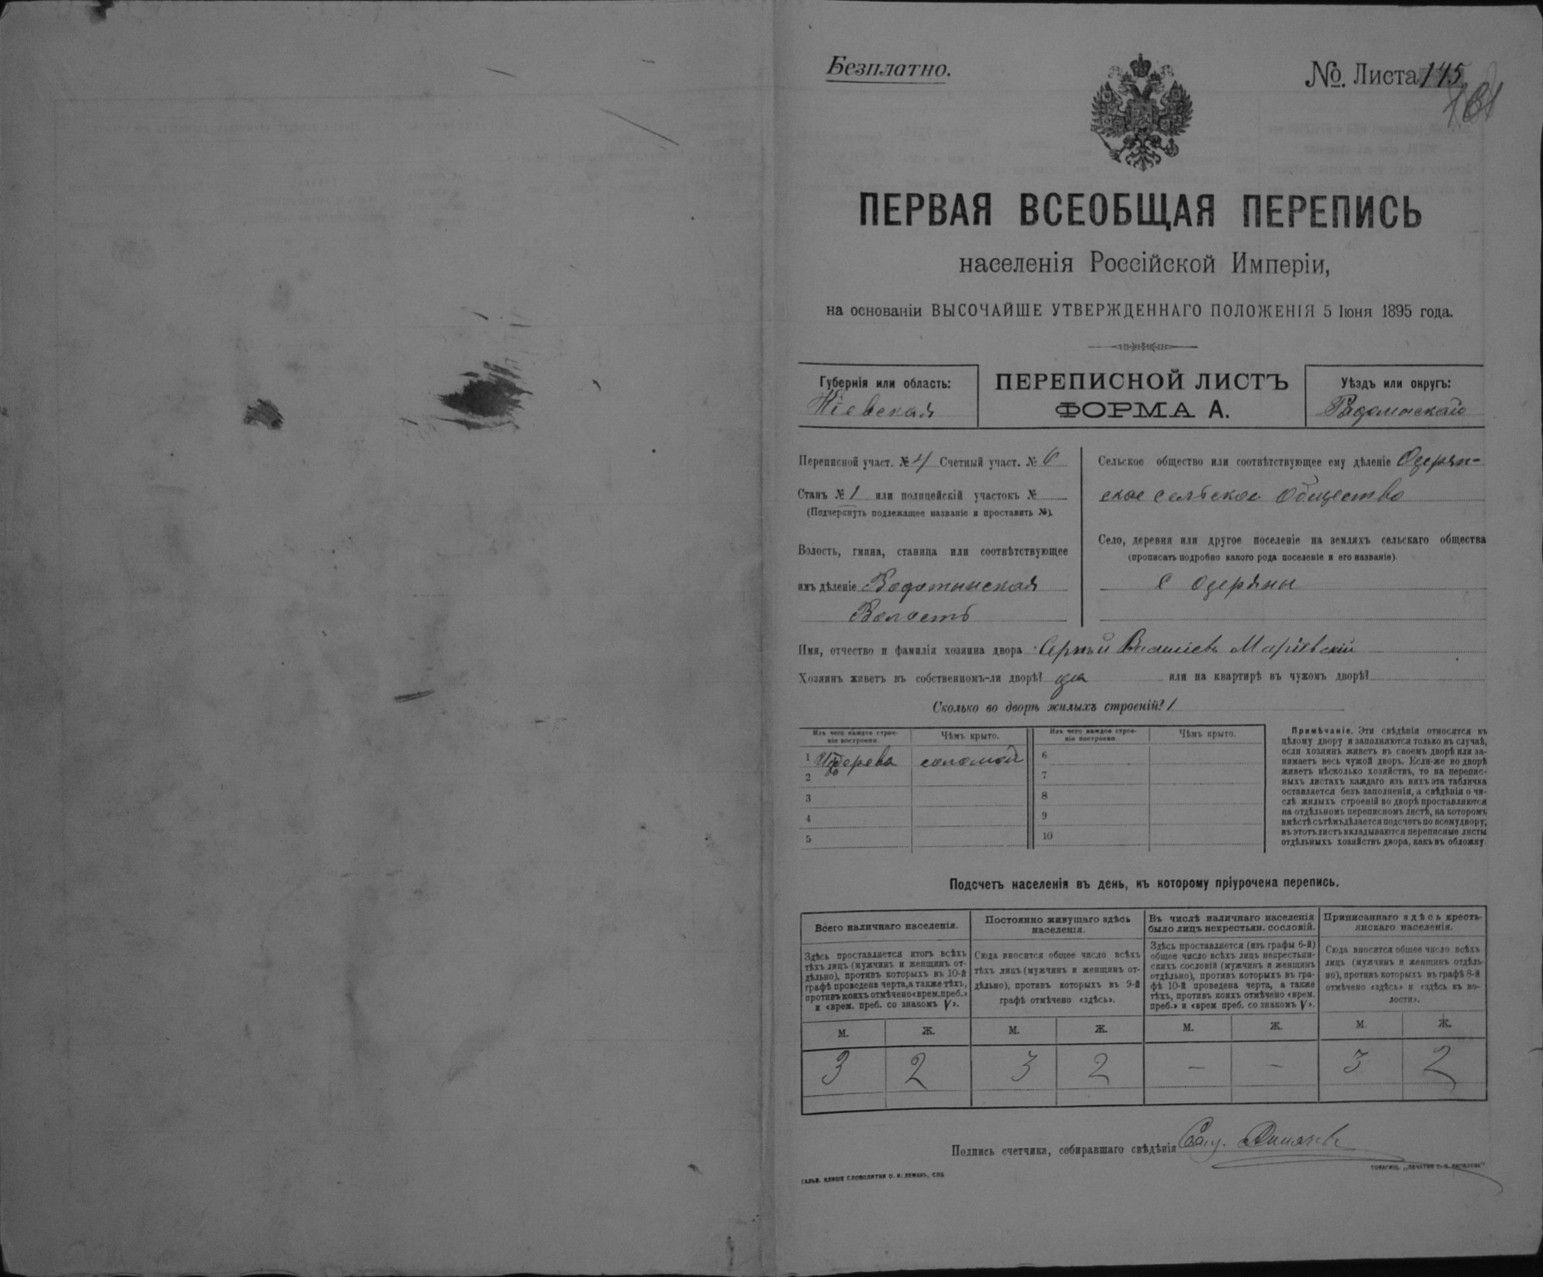 Безплатно.
№. Листа 145
131
ПЕРВАЯ ВСЕОБЩАЯ ПЕРЕПИСЬ
населенія Россійской Имперіи,
на основаніи ВЫСОЧАЙШЕ УТВЕРЖДЕННАГО ПОЛОЖЕНІЯ 5 Іюня 1895 года.
Губернія или область:
Кіевская
ПЕРЕПИСНОЙ ЛИСТЪ
ФОРМА А.
Уѣздъ или округъ:
Радомыскій
Переписной участ. № 4 Счетный участ. № 6
Станъ № 1 или полицейскій участокъ №
(Подчеркнуть подлежащее названіе и проставить №).
Волость, гмина, станица или соотвѣтствующее
имъ дѣленіе Водотыйская
Волость
Сельское общество или соотвѣтствующее ему дѣленіе Озерян-
ское сельское общество
Село, деревня или другое поселеніе на земляхъ сельскаго общества
(прописать подробно какого рода поселеніе и его названіе)
с Озеряны
Имя, отчество и фамилія хозяина двора
Хозяинъ живетъ въ собственномъ-ли дворѣ? да или на квартирѣ въ чужомъ дворѣ?
Сколько во дворѣ жилыхъ строеній? 1
Изъ чего каждое строе-
ніе построено.
Чѣмъ крыто.
Изъ чего каждое строе-
ніе построено.
Чѣмъ крыто.
1 Изъ дерева соломой
2
3
4
5
6
7
8
9
10
Примѣчаніе. Эти свѣдѣнія относятся къ
цѣлому двору и заполняются только въ случаѣ,
если хозяинъ живетъ въ своемъ дворѣ или за-
нимаетъ весь чужой дворъ. Если-же во дворѣ
живетъ нѣсколько хозяйствъ, то на перепис-
ныхъ листахъ каждаго изъ нихъ эта табличка
оставляется безъ заполненія, а свѣдѣнія о чи-
слѣ жилыхъ строеній во дворѣ проставляются
на отдѣльномъ переписномъ листѣ, на которомъ
вмѣстѣ съ тѣмъ дѣлается подсчетъ по всему двору;
въ этотъ листъ вкладываются переписные листы
отдѣльныхъ хозяйствъ двора, какъ въ обложку
Подсчетъ населенія въ день, къ которому пріурочена перепись.
Всего наличнаго населенія.
Здѣсь проставляется итогъ всѣхъ
тѣхъ лицъ (мужчинъ и женщинъ от-
дѣльно), противъ которыхъ въ 10-й
графѣ проведена черта, а также тѣхъ,
противъ коихъ отмѣчено «врем. преб.»
и «врем. преб. со знакомъ V».
Постоянно живущаго здѣсь
населенія.
Сюда вносится общее число всѣхъ
тѣхъ лицъ (мужчинъ и женщинъ от-
дѣльно), противъ которыхъ въ 9-й
графѣ отмѣчено «здѣсь».
Въ числѣ наличнаго населенія
было лицъ некрестьян. сословій.
Здѣсь проставляется (изъ графы 6-й)
общее число всѣхъ лицъ некрестьян-
скихъ сословій (мужчинъ и женщинъ
отдѣльно), противъ которыхъ въ гра-
фѣ 10-й проведена черта, а также
тѣхъ, противъ коихъ отмѣчено «врем.
преб.» и «врем преб. со знакомъ V».
Приписаннаго здѣсь кресть-
янскаго населенія.
Сюда вносится общее число всѣхъ
лицъ (мужчинъ и женщинъ отдѣль-
но), противъ которыхъ въ графѣ 8-й
отмѣчено «здѣсь» и «здѣсь въ во-
лости».
М. Ж. М. Ж. М. Ж. М. Ж.
3 2 3 2 – – 3 2
Подпись счетчика, собиравшаго свѣдѣнія